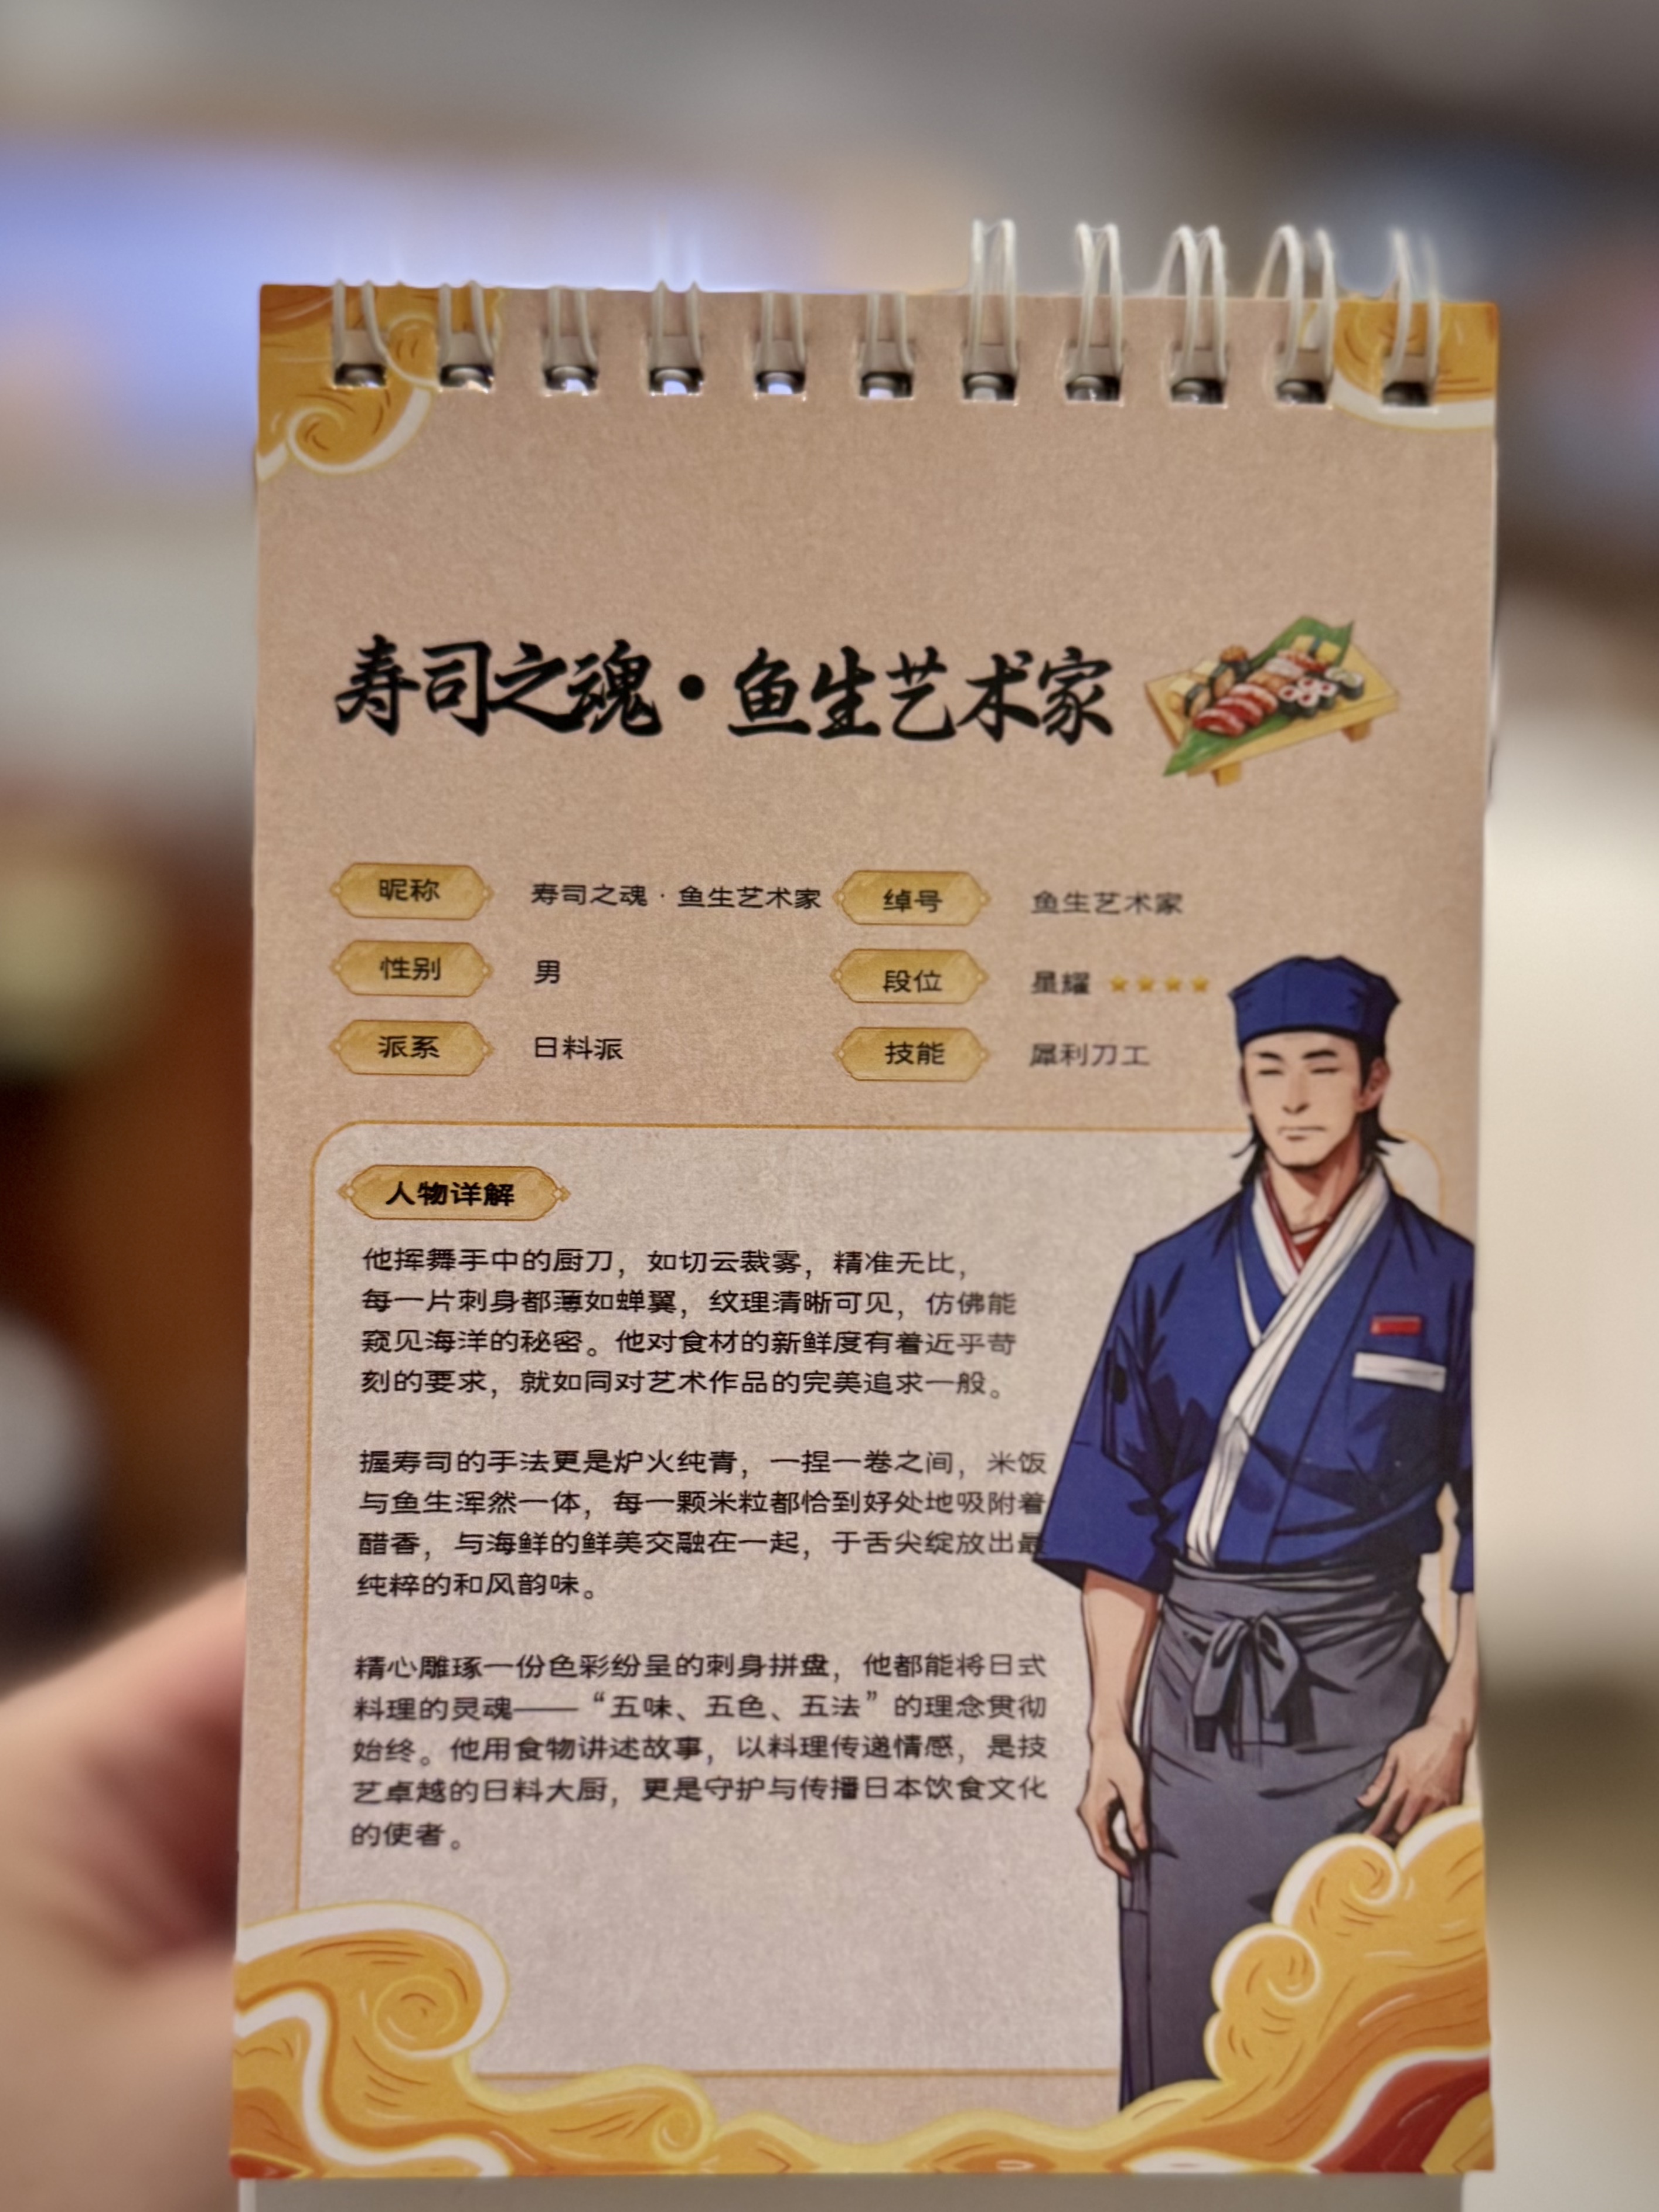 寿司之魂·鱼生艺术家
昵称 寿司之魂·鱼生艺术家 绰号 鱼生艺术家
性别 男 段位 星耀 ★★★★
派系 日料派 技能 犀利刀工
人物详解
他挥舞手中的厨刀，如切云裁雾，精准无比，
每一片刺身都薄如蝉翼，纹理清晰可见，仿佛能
窥见海洋的秘密。他对食材的新鲜度有着近乎苛
刻的要求，就如同对艺术作品的完美追求一般。
握寿司的手法更是炉火纯青，一捏一卷之间，米饭
与鱼生浑然一体，每一颗米粒都恰到好处地吸附着
醋香，与海鲜的鲜美交融在一起，于舌尖绽放出最
纯粹的和风韵味。
精心雕琢一份色彩纷呈的刺身拼盘，他都能将日式
料理的灵魂——“五味、五色、五法”的理念贯彻
始终。他用食物讲述故事，以料理传递情感，是技
艺卓越的日料大厨，更是守护与传播日本饮食文化
的使者。